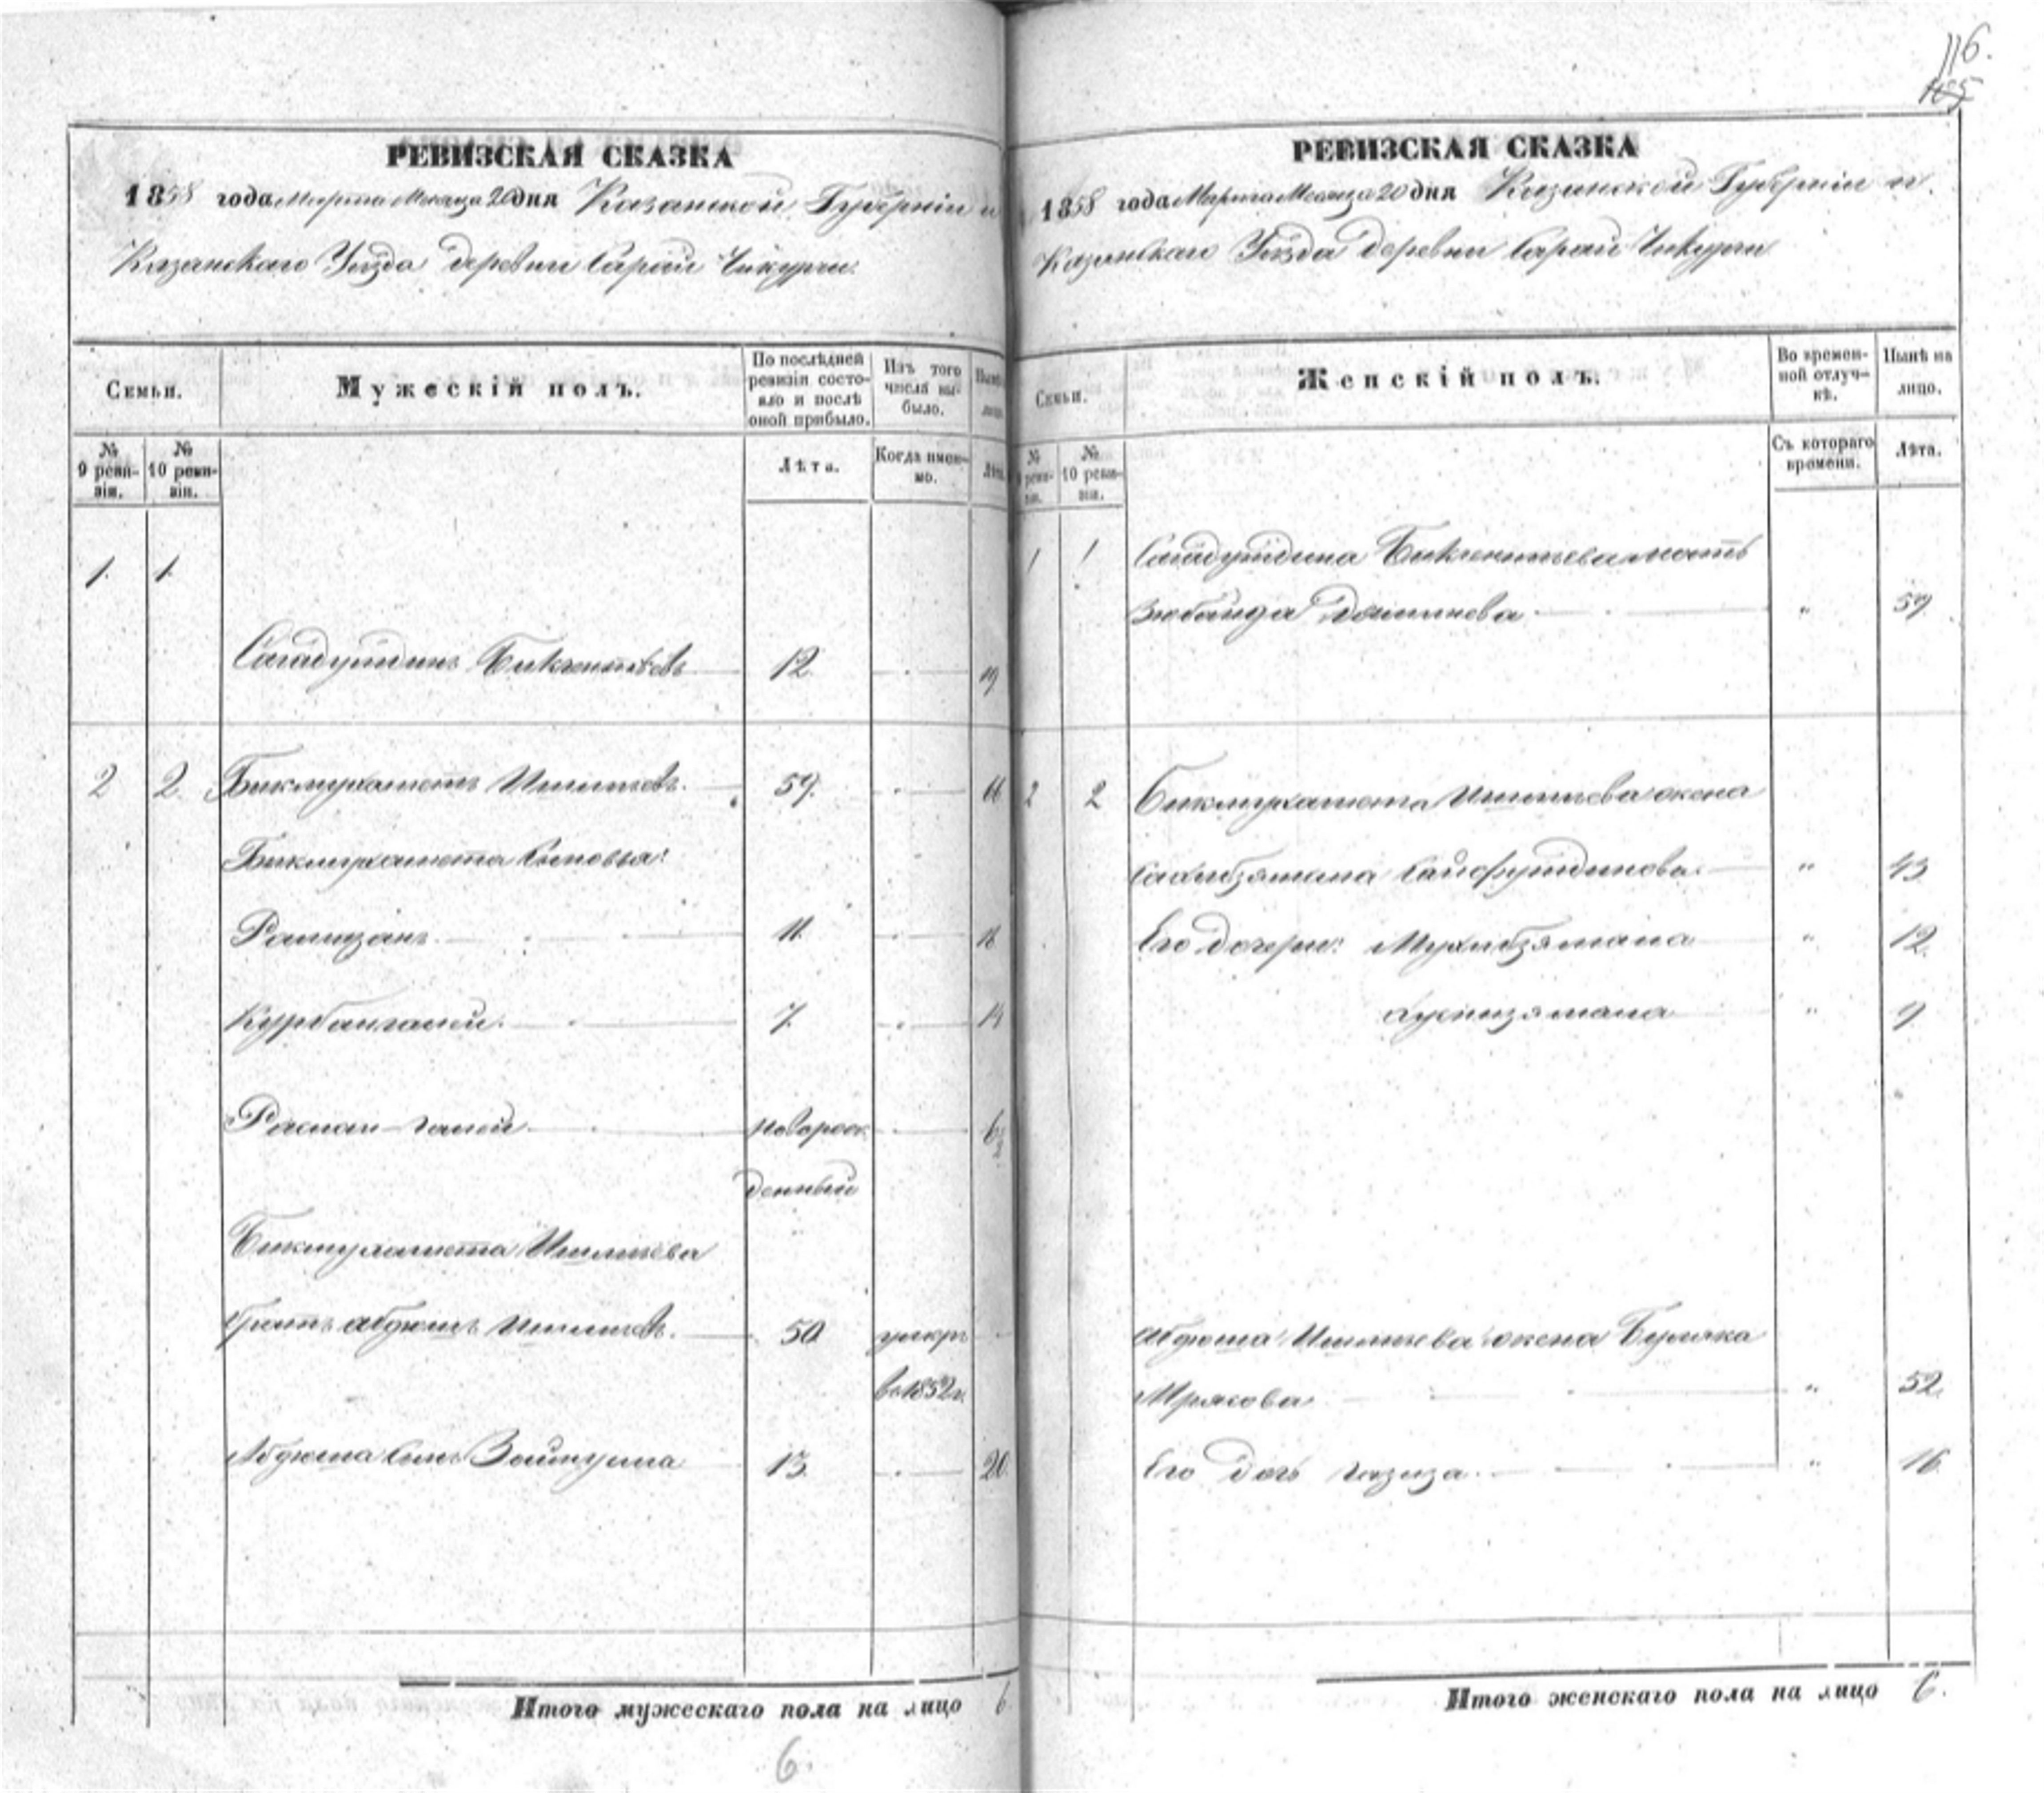 116.
105
РЕВИЗСКАЯ СКАЗКА
1858 года Марта Месяца 20 дня Казанской Губерніи и
Казанскаго Уѣзда деревни Сарай Чикурчи.
Семьи.
Мужескій полъ.
По послѣдней ревизіи состояло и послѣ оной прибыло.
Изъ того числа выбыло.
№ 9 ревизіи.
№ 10 ревизіи.
Лѣта.
Когда именно.
Лѣта.
1. 1.
Сагадутдинъ Бикчентѣевъ 12. 19
2 2. Бикмухаметъ Ишметевъ. 59. 66
Бикмухамета Сыновья:
Рамазанъ. 11. 18
Курбангалей. 7. 14
новорож
денный 6
Бикмухамета
братъ Абдюшъ 50 умеръ
въ 1852 г.
Абдюша Сынъ 13. 20
Итого мужескаго пола на лицо 6.
6.
РЕВИЗСКАЯ СКАЗКА
1858 года Марта Месяца 20 дня Казанской Губерніи и
Казанскаго Уѣзда деревни Сарай Чикурчи
Семьи.
Женскій полъ.
Во временной отлучкѣ.
Нынѣ на лицо.
№ 9 ревизіи.
№ 10 ревизіи.
Съ котораго времени.
Лѣта.
1 1 Сагадутдина Бикчентѣева мать
Зюбайда " 57.
2 2 Бикмухамета жена
Сайфутдинова. " 43
Его дочери: Мухибзямала " 12.
" 9.
Абдюша жена
" 52.
Его дочь Газиза. " 16.
Итого женскаго пола на лицо 6.